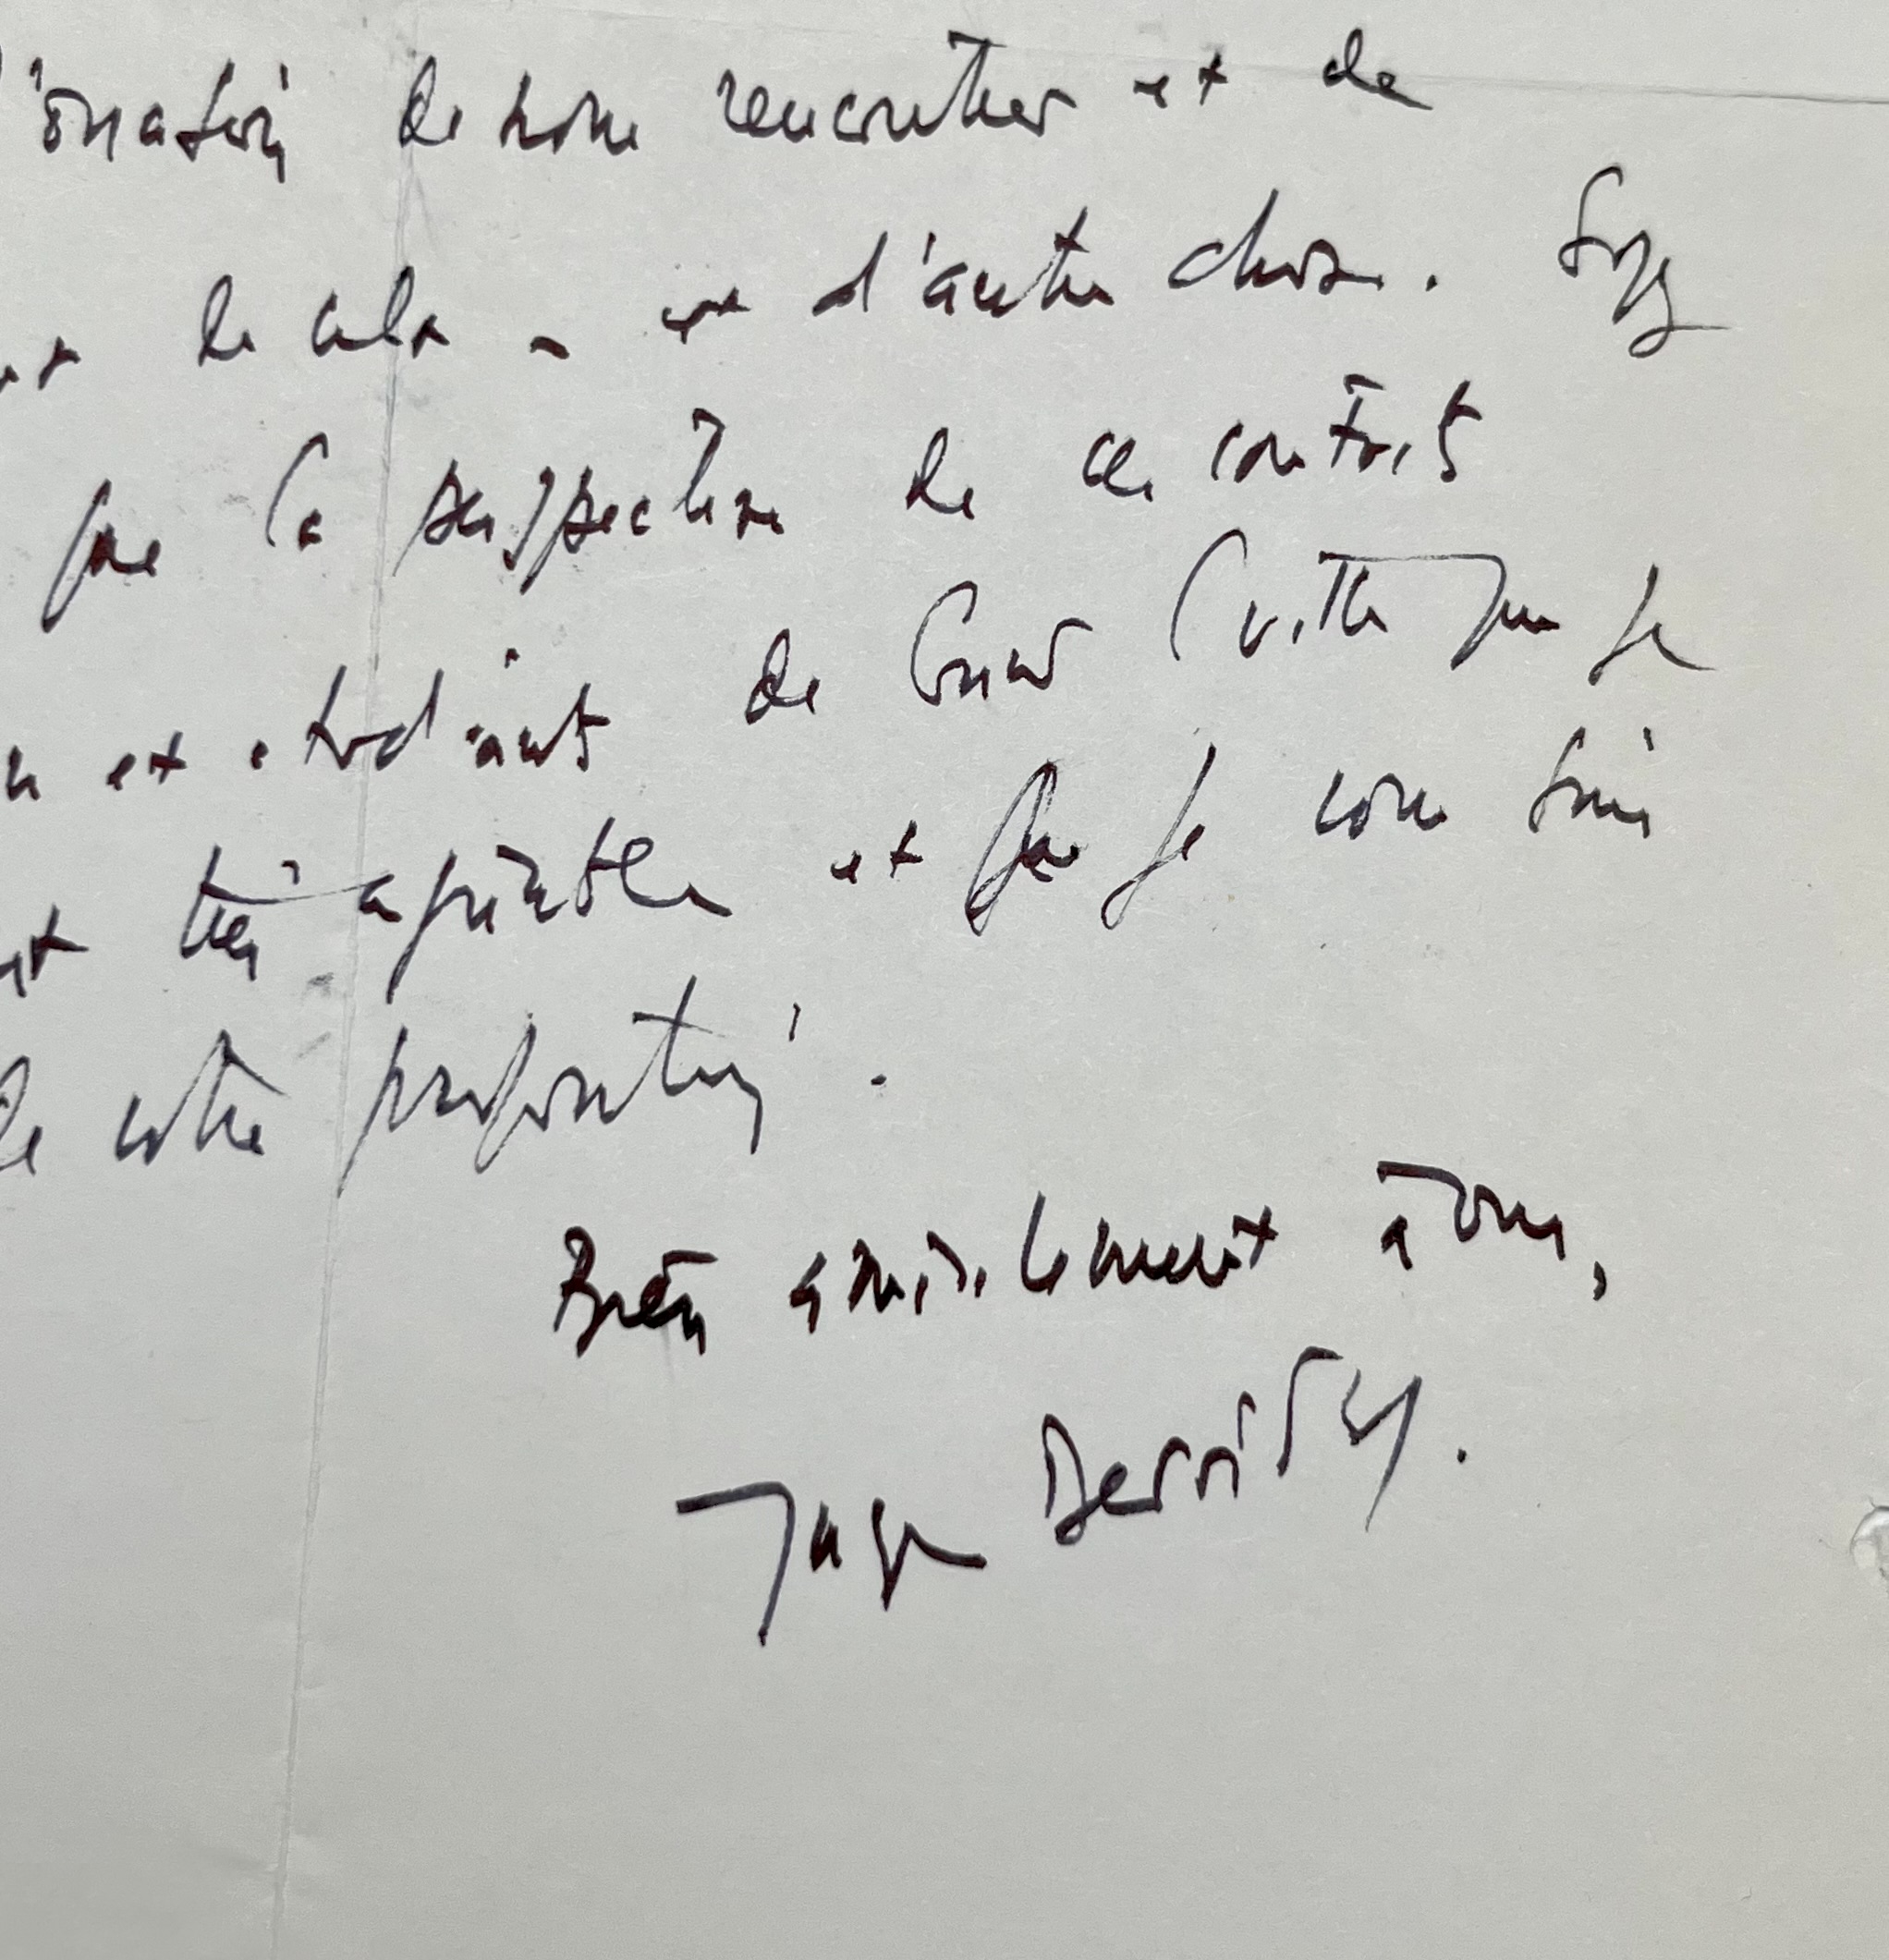 l'occasion de nous rencontrer et de
de cela - et d'autre chose. Soyez
que la perspective de ce contact
et étudiants de (ville que je
très agréable et que je vous suis
de votre proposition.
Bien amicalement à vous,
Jacques Derrida.